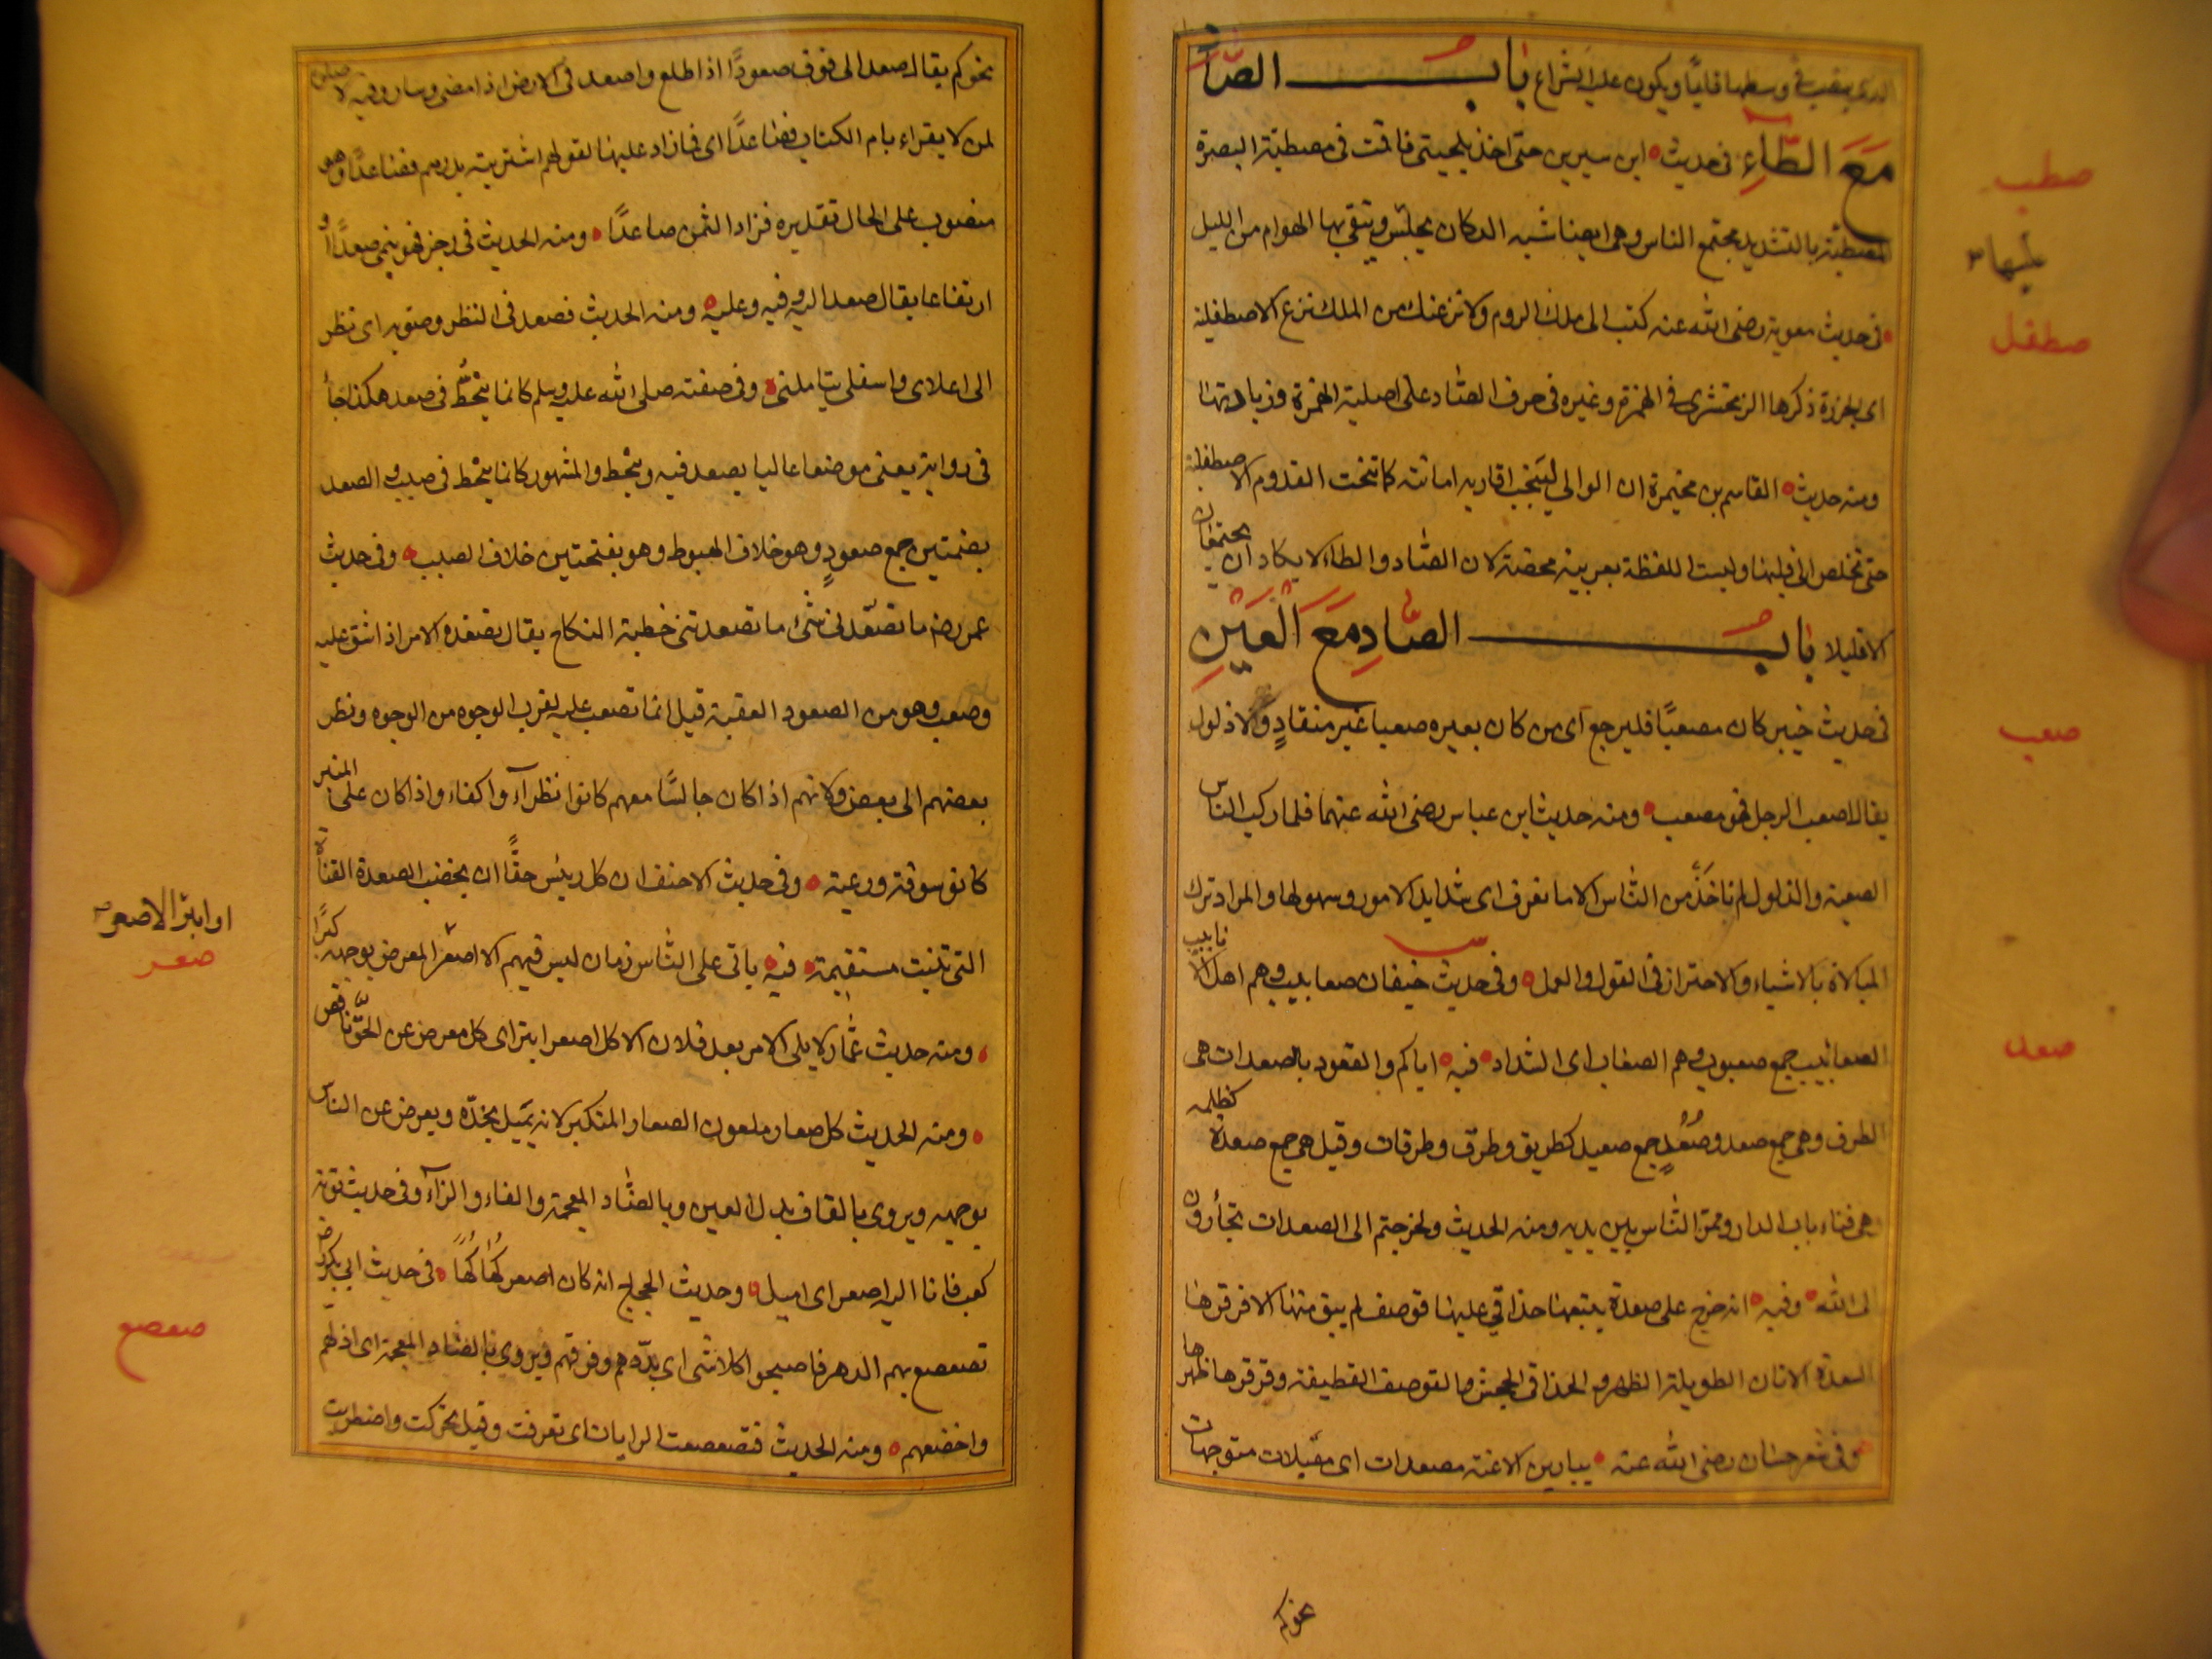 الذى ينصب فى وسطها قايما ويكون عليه الشراع باب الصاد
مَعَ الطاءِ فى حديث ابن سيرين حتى اخذ بلحيتى فاقمت فى مصطبة البصرة
صطب
المصطبة بالتشديد مجتمع الناس وهى ايضا شبه الدكان يجلس ويتقى بها الهوام من الليل
عليها
فى حديث معوية رضى الله عنه كتب الى ملك الروم ولانزعنك من الملك نزع الاصطفلينة
صطفل
اى الجزرة ذكرها الزمخشرى فى الهمزة وغيره فى حرف الصاد على اصلية الهمزة وزيادتها
ومنه حديث القاسم بن مخيمرة ان الوالى لينحب اقاربه امانته كما تنحت القدوم الاصطفلينة
حتى تخلص الى قلبها وليست اللفظة بعربية محضة لان الصاد والطاء لا يكاد ان يجتمعان
الا قليلا باب الصادِ مَعَ الْعَيْنِ
فى حديث خيبر كان مصعبًا فليرجع اى من كان بعيره صعبا غير منقادٍ ولا ذلول
صعب
يقال اصعب الرجل فهو مصعب ومنه حديث ابن عباس رضى الله عنهما فلما ركب الناس
الصعبة والذلول لم ناخذ من الناس الا ما نعرف اى شدايد الامور وسهولها والمراد ترك
المبالاة بالاشياء والاحتراز فى القول والعمل وفى حديث خيفان صعابيب وهم اهل الانابيب
الصعابيب جمع صعبوب وهم الصعاب اى الشداد فيه اياكم والقعود بالصعدات هى
صعد
الطرق وهى جمع صعد وصُعُدٍ جمع صعيد كطريق وطرق وطرقات وقيل هى جمع صعدة كظلمه
هى فناء باب الدار وممر الناس بين يديه ومنه الحديث ولخرجتم الى الصعدات تجأرون
الى الله وفيه انه خرج على صعدة يتبعها حذاقى عليها قوصف لم يبق منها الا قرقرها
الصعدة الاتان الطويلة الظهر والحذاقى الجحش والقوصف القطيفة وقرقرها ظهرها
وفى شعر حسان رضى الله عنه يبارين الاعنة مصعدات اى مقبلات متوجهات
نحوكم
نحوكم يقال صعد الى فوق صعودًا اذا طلع واصعد فى الارض اذا مضى وسار وفيه لا صلوة
لمن لا يقراء بام الكتاب فصاعدًا اى فما زاد عليها لقولهم اشتريته بدرهم فصاعدًا وهو
منصوب على الحال تقديره فزاد الثمن صاعدًا ومنه الحديث فى رجز فهو ينمى صعدًا و
ارتفاعا يقال صعد اليه وفيه وعليه ومنه الحديث فصعد فى النظر وصوبه اى نظر
الى اعلاى واسفلى يتاملنى وفى صفته صلى الله عليه وسلم كانما ينحطُّ فى صعد هكذا جاء
فى رواية يعنى موضعا عاليا يصعد فيه وينحط والمشهور كانما ينحط فى صبب والصعد
بضمتين جمع صعودٍ وهو خلاف الهبوط وهو بفتحتين خلاف الصبب وفى حديث
عمر رضه ما تصعّد لى شئ ما تصعدتنى خطبة النكاح يقال تصعده الامر اذا شق عليه
وصعب وهو من الصعود العقبة قيل انما تصعب عليه لقرب الوجوه من الوجوه ونظر
بعضهم الى بعض ولانهم اذا كان جالسًا معهم كانوا نظرآء واكفاء واذا كان على المنبر
كانو سوقة ورعية وفى حديث الاحنف ان كل رئيس حقًّا ان يخضب الصعدة القناة
التى تنبت مستقيمة فيه ياتى على الناس زمان ليس فيهم الا اصعر المعرض بوجهه كبرًا
او ابتر الاصعر
صعر
ومنه حديث عمار لا يلى الامر بعد فلان الا كل اصعر ابتر اى كل معرض عن الحق ناقص
ومنه الحديث كل صعار ملعون الصعار المتكبر لانه يميل بخدّه ويعرض عن الناس
بوجهه ويروى بالقاف بدل العين وبالضاد المعجمة والفاء والزآء وفى حديث توبة
كعب فانا اليه اصعر اى اميل وحديث الحجاج انه كان اصعر كُهَاكِهًا فى حديث ابى بكر رضه
صعصع
تصعصع بهم الدهر فاصبحوا كلاشى اى بدّدهم وفرقهم ويروى بالضاد المعجمة اى اذلهم
واخضعهم ومنه الحديث فتصعصعت الرايات اى تفرقت وقيل تحركت واضطربت